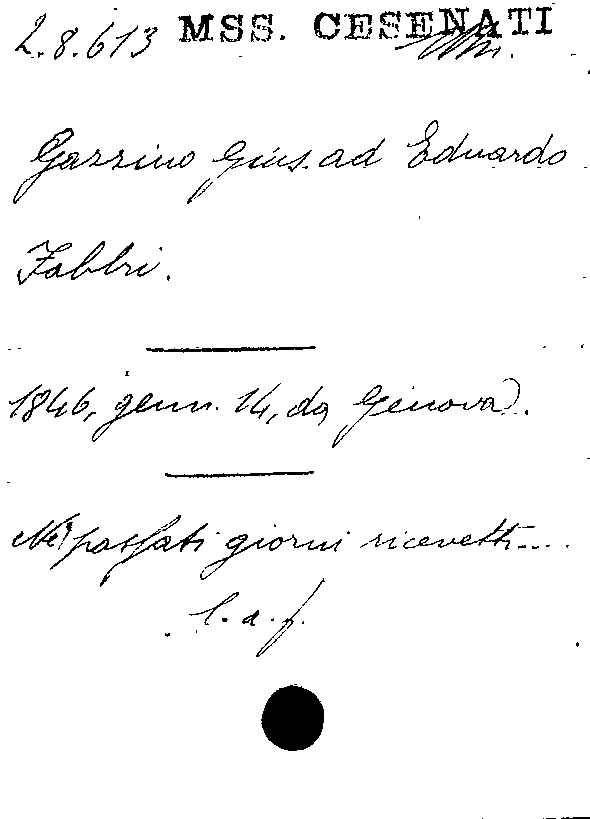 2.8.613 MSS. CESENATI
Gazzino Gius. ad Eduardo
Fabbri.
1846, genn. 14, da Genova.
Nei passati giorni ricevetti....
l. a. f.